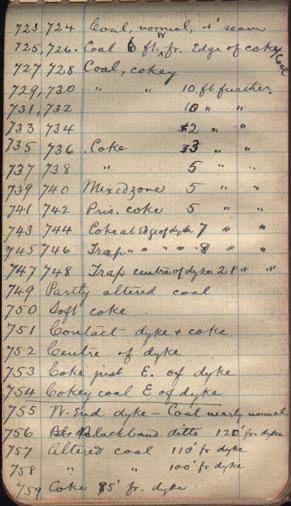 723 724 Coal, normal, 4' seam
725, 726. Coal 6 ft. W. fr. Edge of coke/coal
727 728 Coal, cokey
729, 730 " " 10 ft further
731, 732 10 " "
733 734 2 " "
735 736 Coke 3 " "
737 738 " 5 " "
739 740 Mixed zone 5 " "
741 742 Pris. coke 5 " "
743 744 Coke at Edge of dyke 7 " "
745 746 Trap " " " 8 " "
747 748 Trap centre of dyke 21 " "
749 Partly altered coal
750 Soft coke
751 Contact dyke & coke
752 Centre of dyke
753 Coke just E. of dyke
754 Cokey coal E of dyke
755 W. End dyke - Coal nearly normal
756 Blackband ditto 120' fr. dyke
757 Altered coal 110' fr dyke
758 " " 100' fr dyke
759 Coke 85' fr. dyke